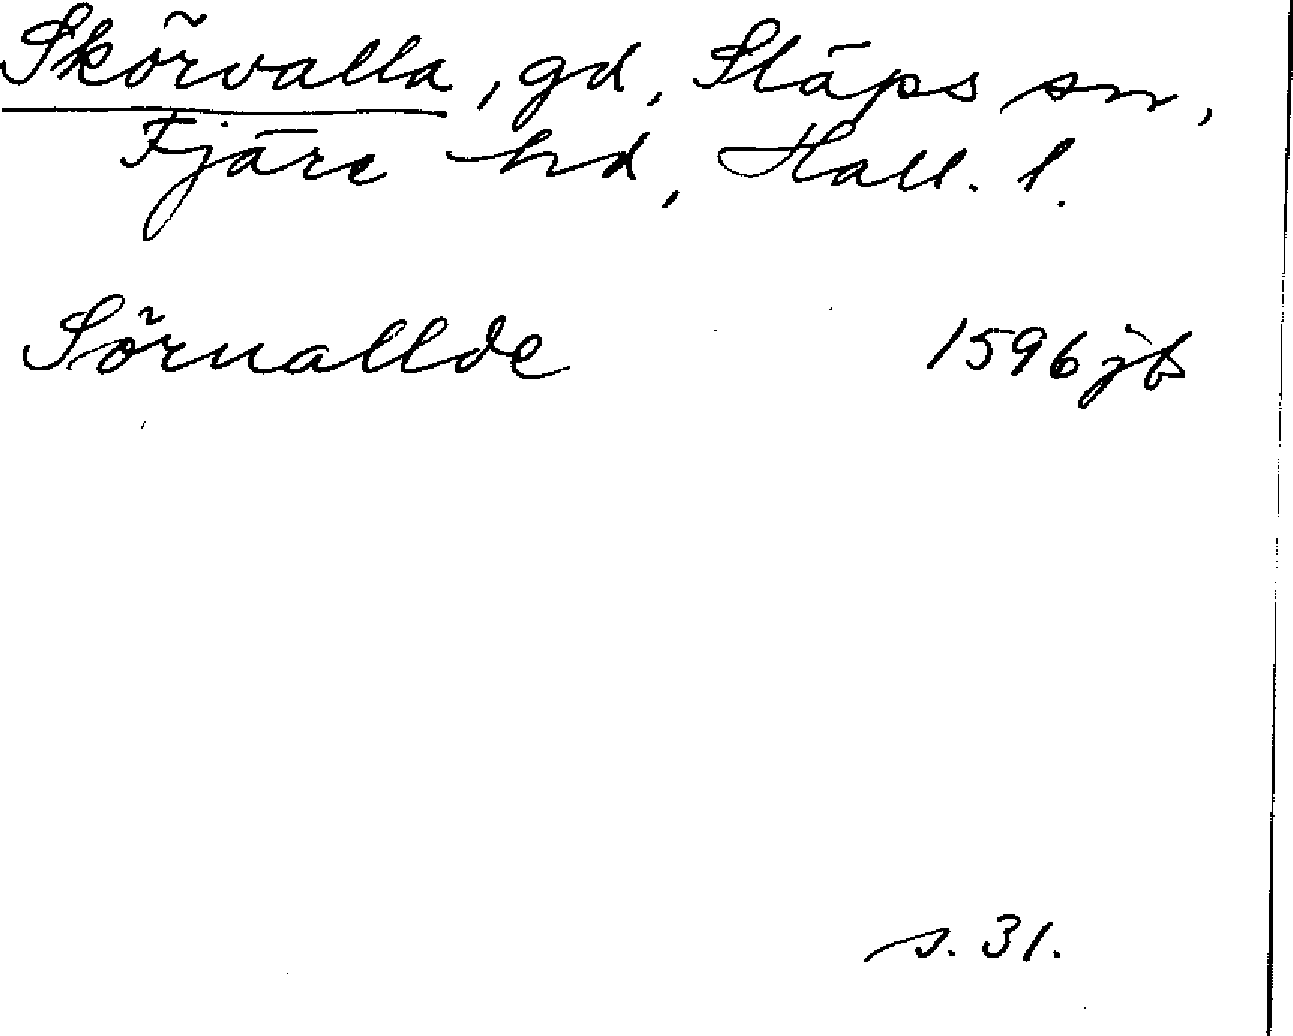 Skörvalla, gd, Släps sn,
Fjäre hd, Hall. l.
Söruallde 1596 jb
s. 31.